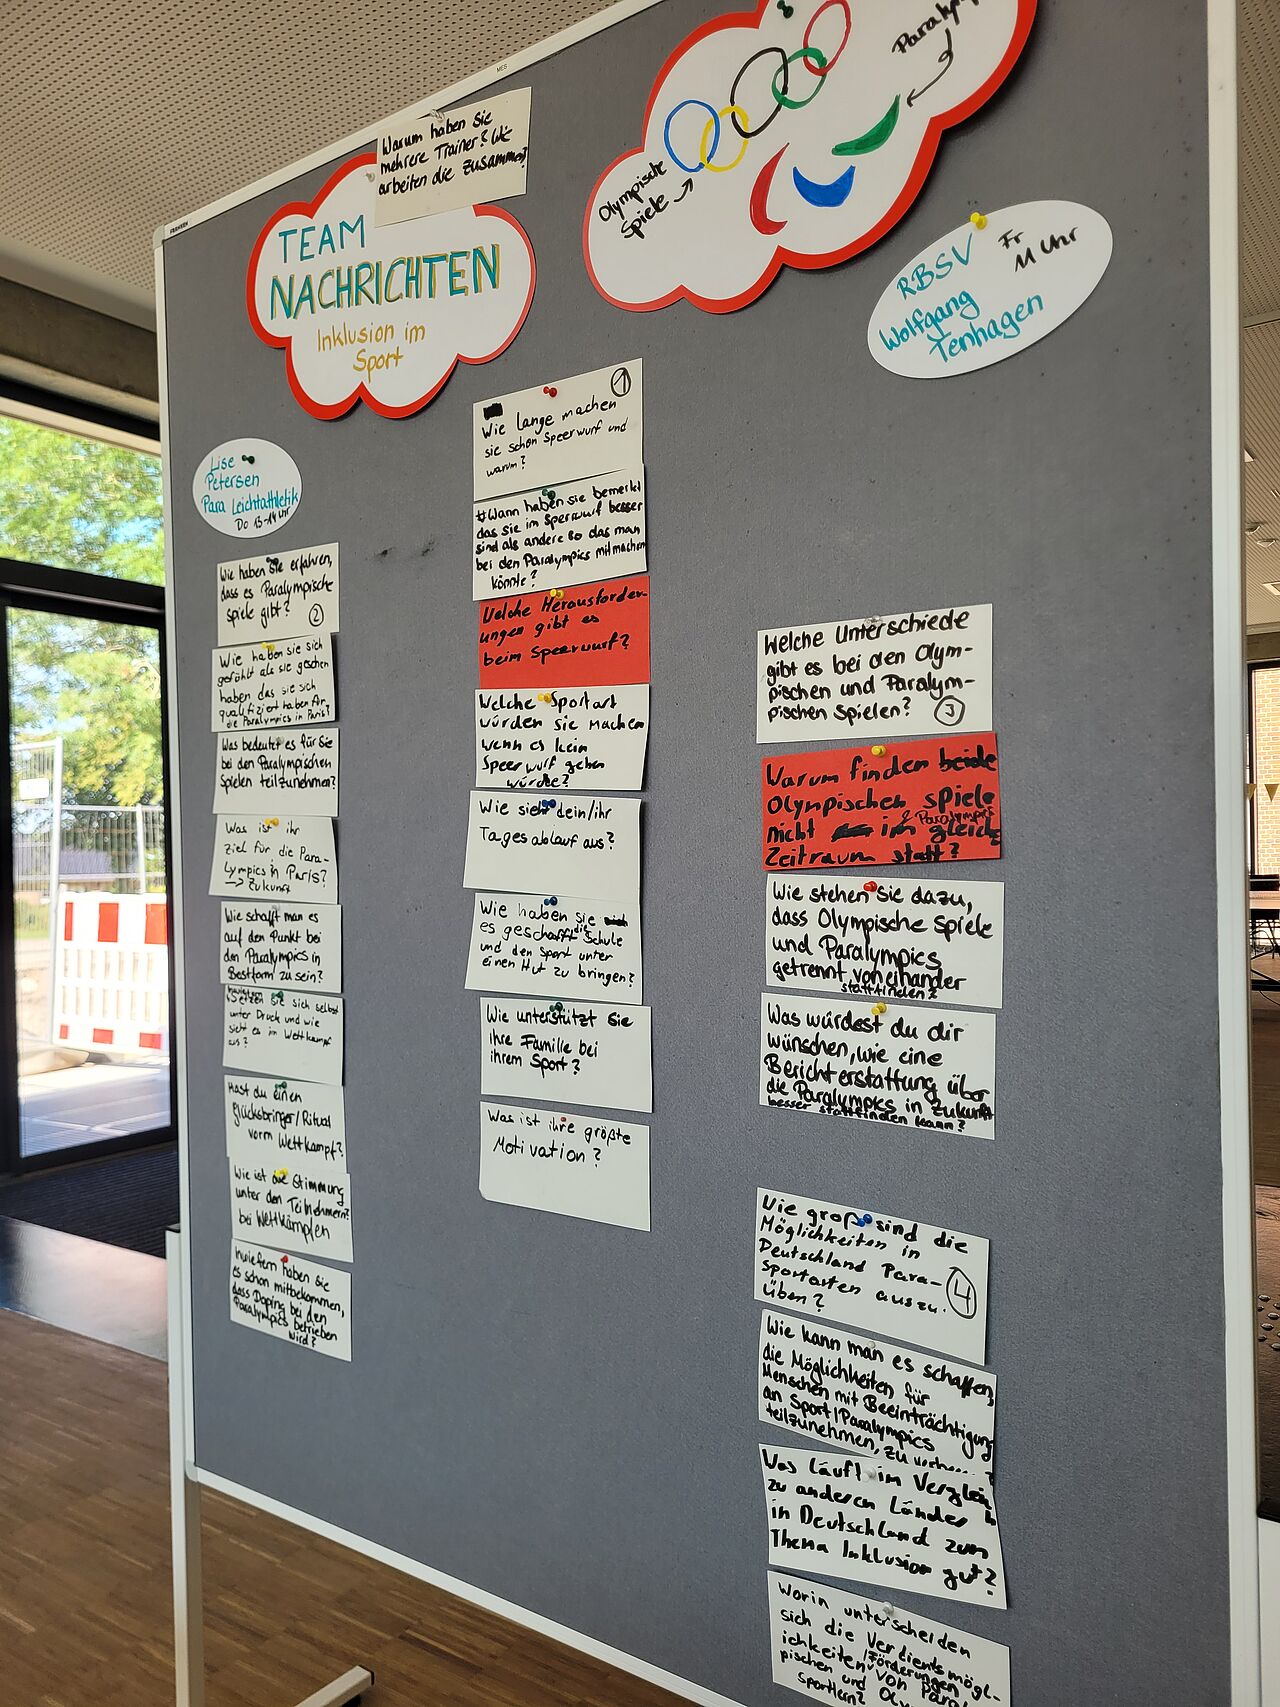 Warum haben Sie
mehrere Trainer? Wie
arbeiten die zusammen?
TEAM
NACHRICHTEN
Inklusion im
Sport
Olympische
Spiele
RBSV
Wolfgang
Tenhagen
Fr
11 Uhr
Lise
Petersen
Para Leichtathletik
Do 13-14 Uhr
Wie haben Sie erfahren,
dass es Paralympische
spiele gibt? 2
Wie haben sie sich
gefühlt als sie gesehen
haben das sie sich
qualifiziert haben für
die Paralympics in Paris?
Was bedeutet es für Sie
bei den Paralympischen
Spielen teilzunehmen?
Was ist ihr
ziel für die Para-
lympics in Paris?
→ Zukunft
Wie schafft man es
auf den Punkt bei
den Paralympics in
Bestform zu sein?
Setzen Sie sich selbst
unter Druck und wie
sieht es im Wettkampf
aus?
Hast du einen
Glücksbringer/Ritual
vorm Wettkampf?
Wie ist die Stimmung
unter den Teilnehmern?
bei Wettkämpfen
Inwiefern haben Sie
es schon mitbekommen,
dass Doping bei den
Paralympics betrieben
wird?
1
Wie lange machen
sie schon Speerwurf und
warum?
Wann haben sie bemerkt
das sie im Sperrwurf besser
sind als andere so das man
bei den Paralympics mitmachen
könnte?
Welche Herausforder-
ungen gibt es
beim Speerwurf?
Welche Sportart
würden sie machen
wenn es kein
Speerwurf geben
würde?
Wie sieht dein/ihr
Tagesablauf aus?
Wie haben Sie
es geschafft die Schule
und den Sport unter
einen Hut zu bringen?
Wie unterstützt Sie
ihre Familie bei
ihrem Sport?
Was ist ihre größte
Motivation?
Welche Unterschiede
gibt es bei den Olym-
pischen und Paralym-
pischen Spielen? 3
Warum finden beide
Olympischen spiele
& Paralympics
nicht im gleichen
Zeitraum statt?
Wie stehen Sie dazu,
dass Olympische Spiele
und Paralympics
getrennt voneinander
stattfinden?
Was würdest du dir
wünschen, wie eine
Berichterstattung über
die Paralympics in Zukunft
besser stattfinden kann?
Wie groß sind die
Möglichkeiten in
Deutschland Para-
Sportarten auszu-
üben? 4
Wie kann man es schaffen,
die Möglichkeiten für
Menschen mit Beeinträchtigung
an Sport/Paralympics
teilzunehmen, zu
Was läuft im Vergleich
zu anderen Länder
in Deutschland zum
Thema Inklusion gut?
Worin unterscheiden
sich die Verdienstmögl-
ichkeiten/Förderungen von Paralym-
pischen und
Sportlern?